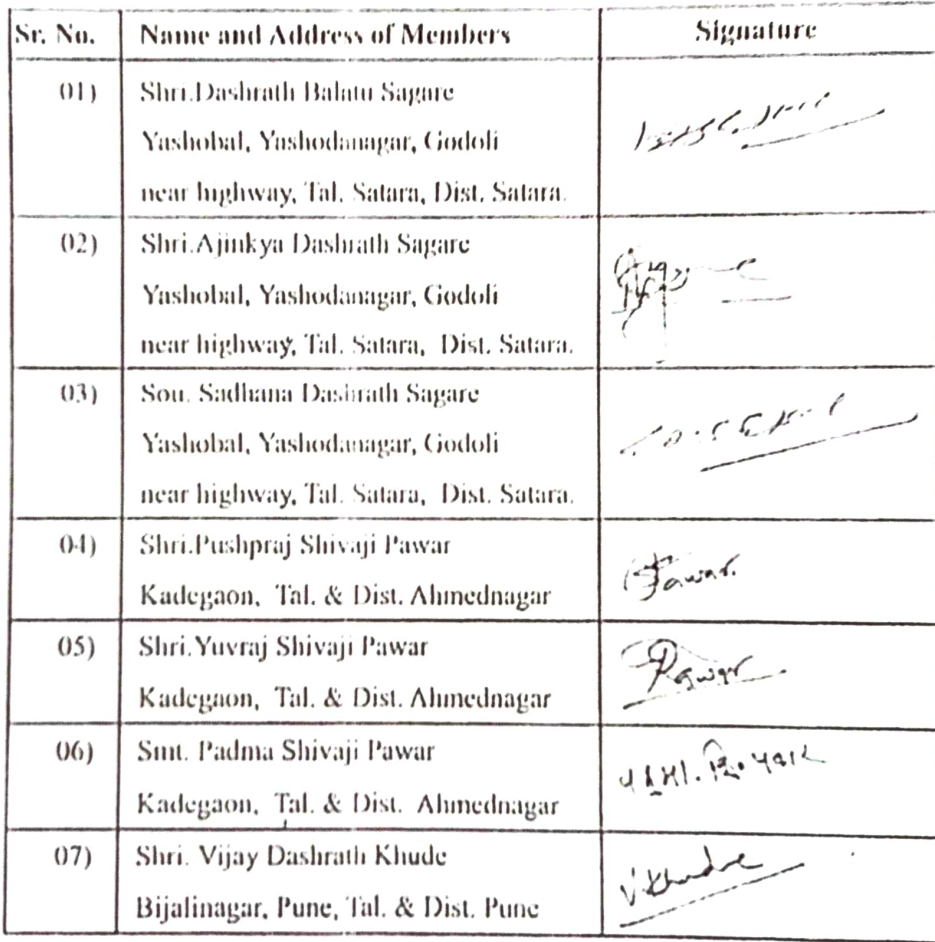 Sr. No. Name and Address of Members Signature
01) Shri.Dashrath Balatu Sagare
Yashobal, Yashodanagar, Godoli
near highway, Tal. Satara, Dist. Satara.
02) Shri.Ajinkya Dashrath Sagare
Yashobal, Yashodanagar, Godoli
near highway, Tal. Satara, Dist. Satara.
03) Sou. Sadhana Dashrath Sagare
Yashobal, Yashodanagar, Godoli
near highway, Tal. Satara, Dist. Satara.
04) Shri.Pushpraj Shivaji Pawar
Kadegaon, Tal. & Dist. Ahmednagar
Pawar.
05) Shri.Yuvraj Shivaji Pawar
Kadegaon, Tal. & Dist. Ahmednagar
Pawar
06) Smt. Padma Shivaji Pawar
Kadegaon, Tal. & Dist. Ahmednagar
07) Shri. Vijay Dashrath Khude
Bijalinagar, Pune, Tal. & Dist. Pune